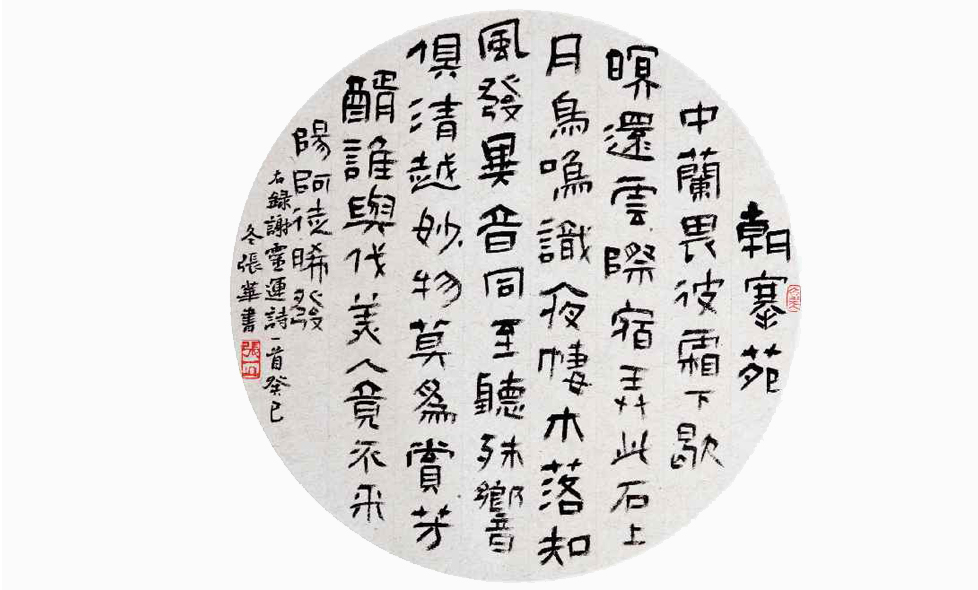 朝搴苑
中蘭畏彼霜下歇
暝還雲際宿弄此石上
月鳥鳴識夜棲木落知
風發異音同至聽殊響
俱清越妙物莫為賞芳
醑誰與伐美人竟不來
陽阿徒晞發
右錄謝靈運詩一首癸巳
冬張華書